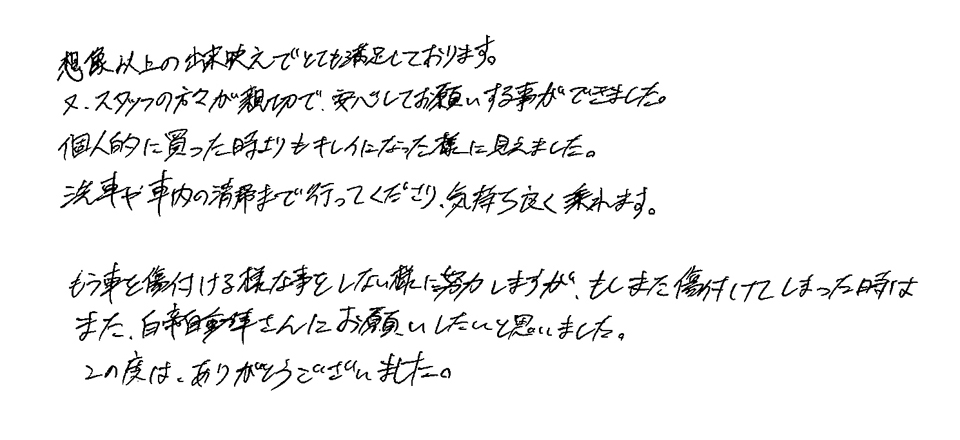 想像以上の出来映えでとても満足しております。
又、スタッフの方々が親切で、安心してお願いする事ができました。
個人的に買った時よりもキレイになった様に見えました。
洗車や車内の清掃まで行ってくださり、気持ち良く乗れます。
もう車を傷付ける様な事をしない様に努力しますが、もしまた傷付けてしまった時は
また、白新自動車さんにお願いしたいと思いました。
この度は、ありがとうございました。